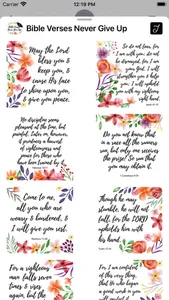 12:19 PM
Bible Verses Never Give Up
May the Lord
bless you &
keep you, &
cause His face
to shine upon you,
& give you peace.
So do not fear, for
I am with you; do not
be dismayed, for I am
your God. I will
strengthen you & help
you; I will uphold you
with my righteous
right hand.
No discipline seems
pleasant at the time, but
painful. Later on, however,
it produces a harvest
of righteousness and
peace for those who
have been trained by it.
Do you not know that
in a race all the runners
run, but only one receives
the prize? So run that
you may obtain it.
1 Corinthians 9:24
Come to me,
all you who are
weary & burdened, &
I will give you rest.
though he may
stumble, he will not
fall, for the LORD
upholds him with
his hand.
For a righteous
man falls seven
times & rises
again, but the
For I am confident
of this very thing,
that he who began
a good work in you
will perfect it